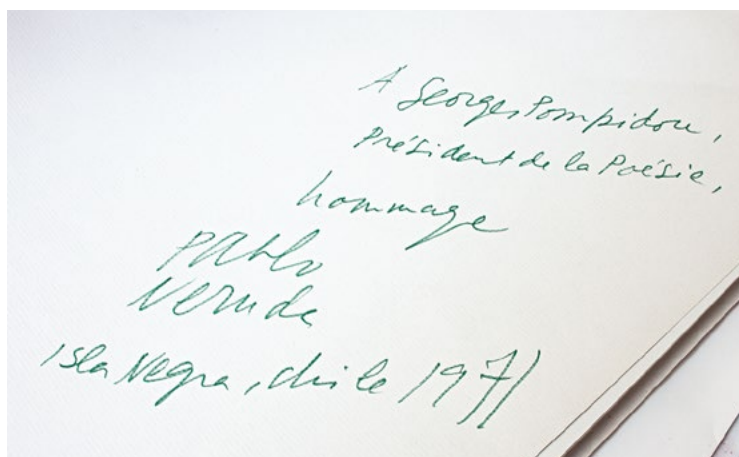 A Georges Pompidou,
Président de la Poésie,
hommage
Pablo
Neruda
isla Negra, chile 1971